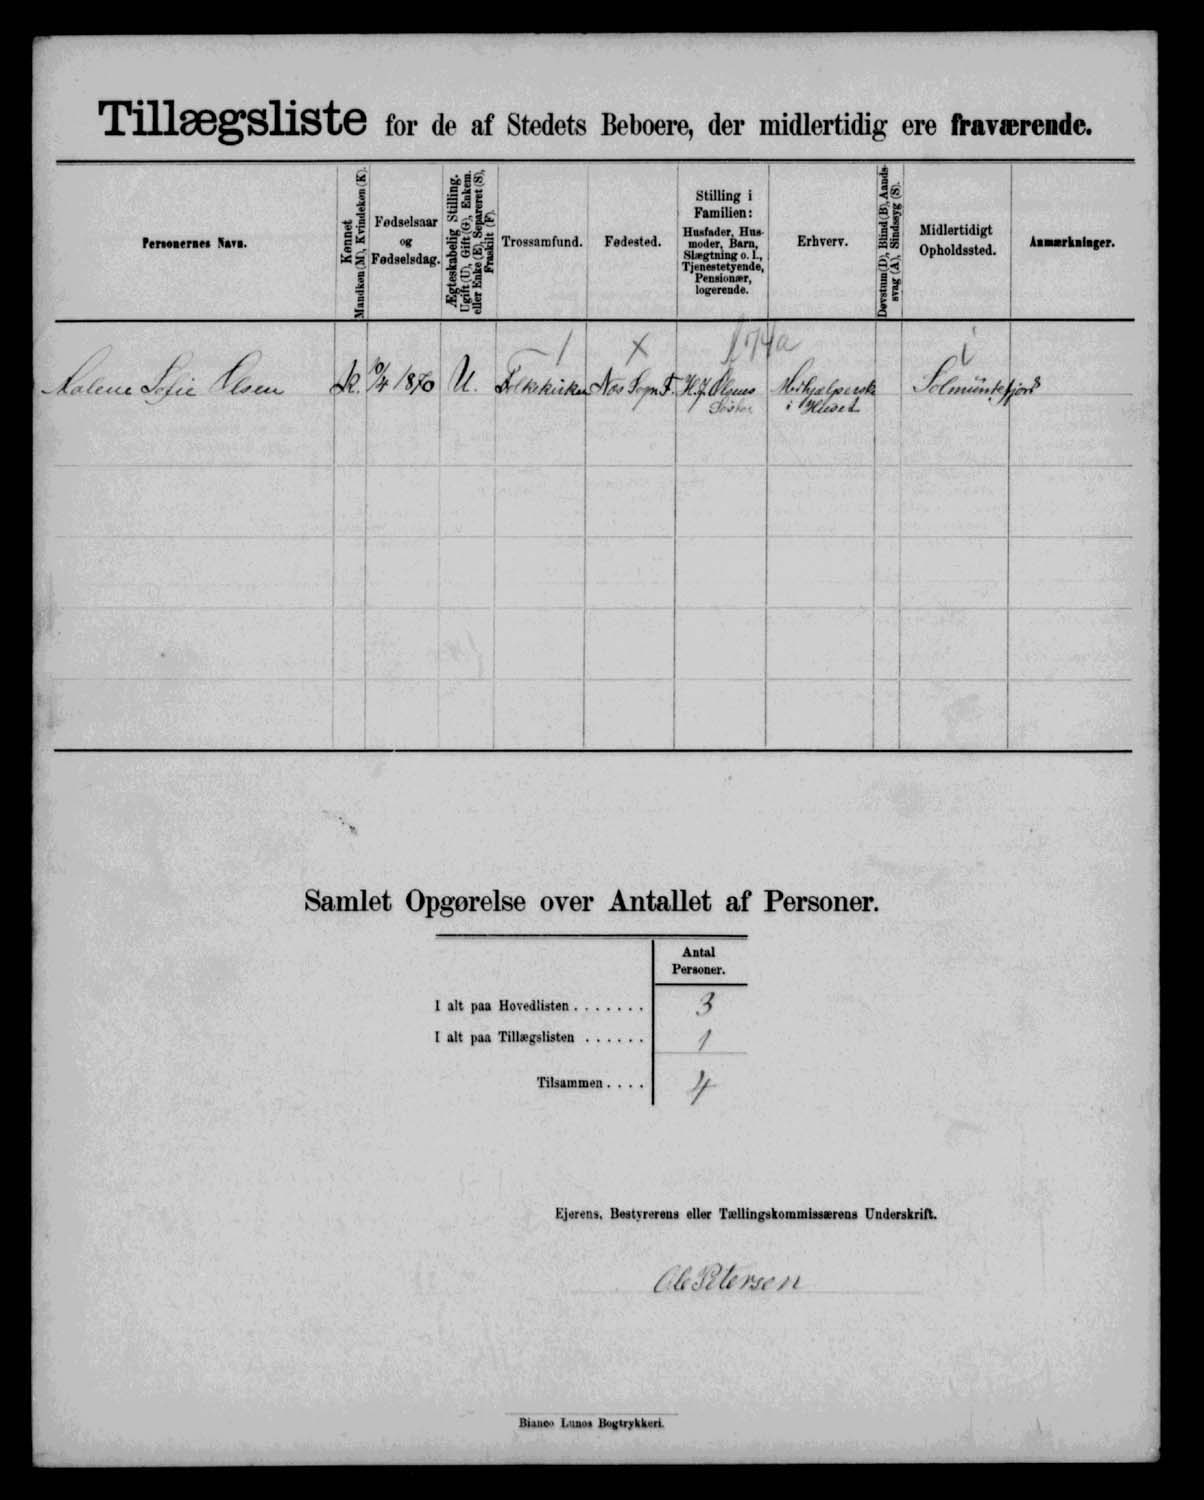 Tillægsliste for de af Stedets Beboere, der midlertidig ere fraværende.
Personernes Navn.
Kønnet
Mandkøn (M), Kvindekøn (K).
Fødselsaar
og
Fødselsdag.
Ægteskabelig Stilling.
Ugift (U), Gift (G), Enkem.
eller Enke (E), Separeret (S),
Fraskilt (F).
Trossamfund.
Fødested.
Stilling i
Familien:
Husfader, Hus-
moder, Barn,
Slægtning o. l.,
Tjenestetyende,
Pensionær,
logerende.
Erhverv.
Døvstum (D), Blind (B), Aands-
svag (A), Sindssyg (S).
Midlertidigt
Opholdssted.
Anmærkninger.
Malene Sofie Olsen K. 1870 U. Folkekirken Næs Sogn F. H. J. Olsens
Søster
Medhjælperske
i Huset
Solmundefjord
Samlet Opgørelse over Antallet af Personer.
Antal
Personer.
I alt paa Hovedlisten . . . . . . . 3
I alt paa Tillægslisten . . . . . . 1
Tilsammen . . . . 4
Ejerens, Bestyrerens eller Tællingskommissærens Underskrift.
Ole Petersen
Bianco Lunos Bogtrykkeri.